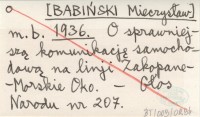 [BABIŃSKI Mieczysław]
m.b. 1936. O sprawniej-
szą komunikację samocho-
dową na linji Zakopane-
-Morskie Oko. - Głos
Narodu nr 207.